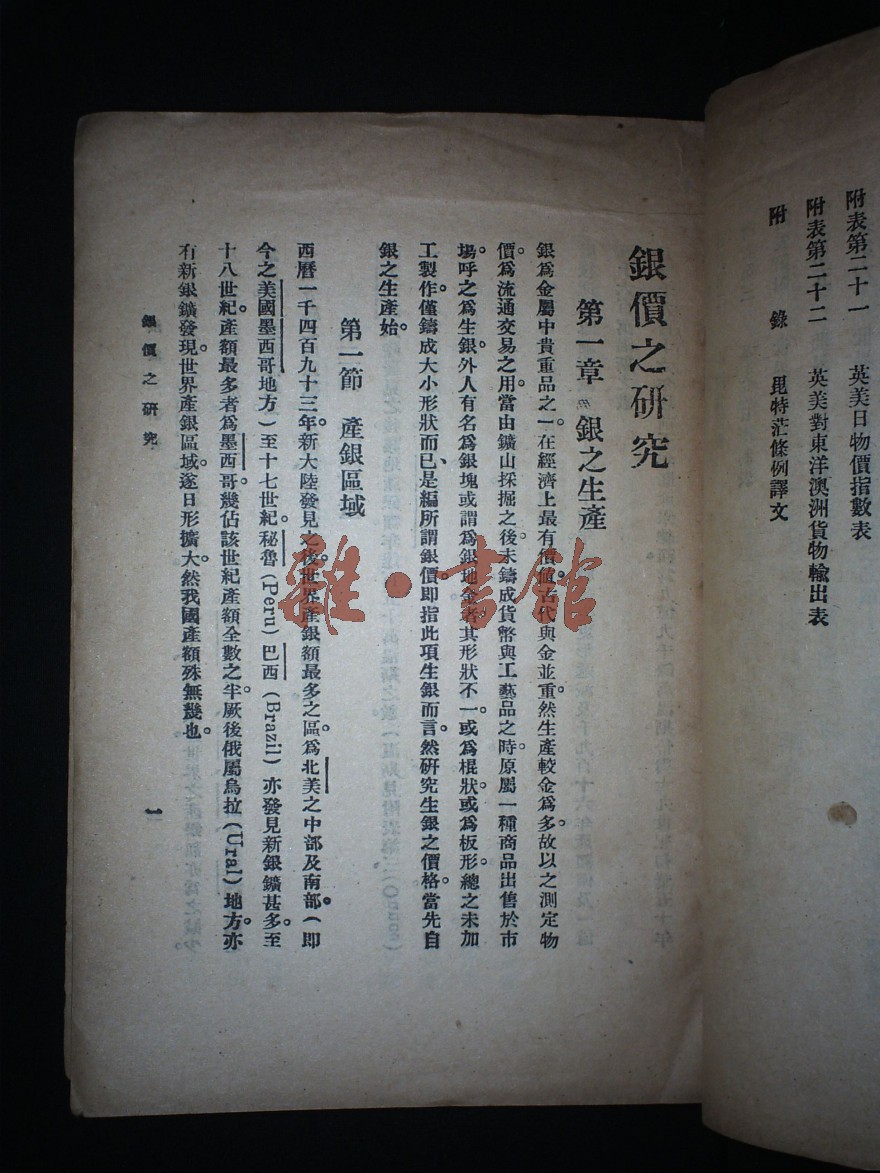 附表第二十一 英美日物價指數表
附表第二十二 英美對東洋澳洲貨物輸出表
附錄 毘特茫條例譯文
銀價之硏究
第一章 銀之生產
銀爲金屬中貴重品之一。在經濟上最有價值。古代與金並重。然生產較金爲多。故以之測定物
價。爲流通交易之用。當由鑛山採掘之後。未鑄成貨幣與工藝品之時。原屬一種商品出售於市
場。呼之爲生銀。外人有名爲銀塊。或謂爲銀地金者。其形狀不一。或爲棍狀。或爲板形。總之未加
工製作。僅鑄成大小形狀而已、是編所謂銀價。即指此項生銀而言。然硏究生銀之價格。當先自
銀之生產始。
第一節 產銀區域
西曆一千四百九十三年。新大陸發見之後。世界產銀額最多之區。爲北美之中部及南部。(即
今之美國墨西哥地方)至十七世紀。秘魯(Peru)巴西(Brazil)亦發見新銀鑛甚多。至
十八世紀。產額最多者爲墨西哥。幾佔該世紀產額全數之半。厥後俄屬烏拉(Ural)地方。亦
有新銀鑛發現。世界產銀區域。遂日形擴大。然我國產額殊無幾也。
銀價之硏究
一
雜·書館